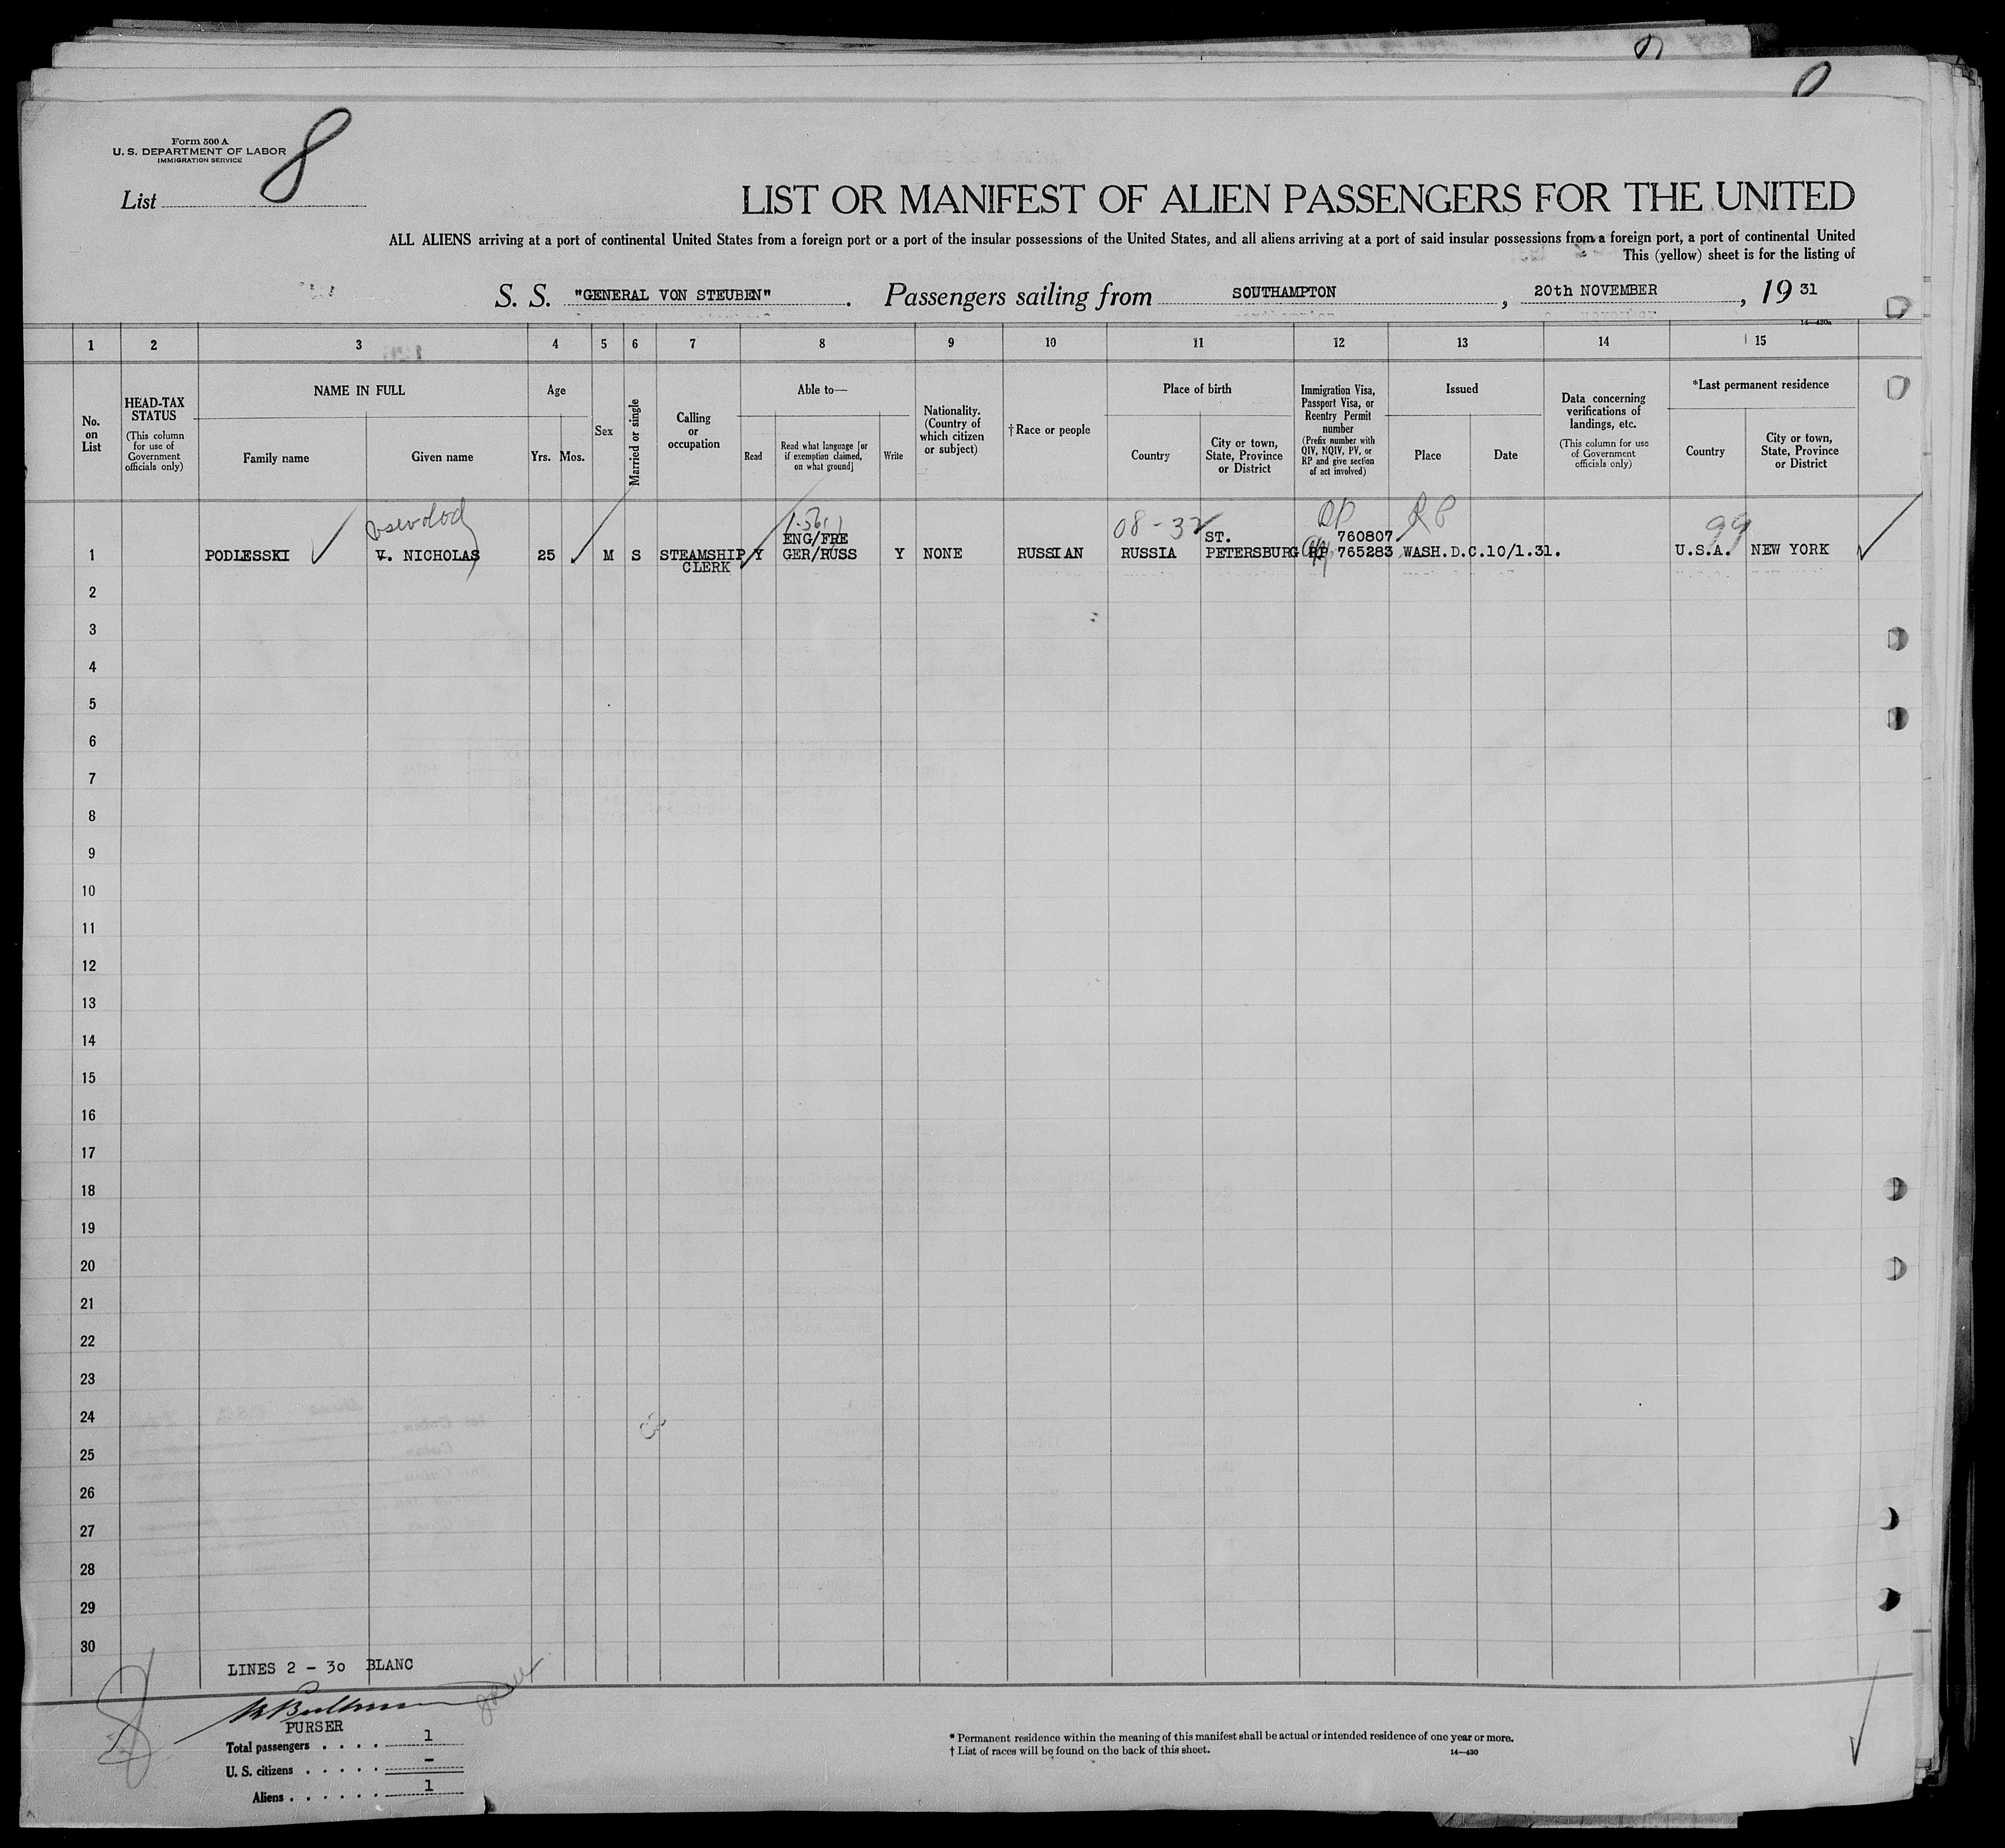 Form 500 A
U. S. DEPARTMENT OF LABOR
IMMIGRATION SERVICE
List 8
LIST OR MANIFEST OF ALIEN PASSENGERS FOR THE UNITED
ALL ALIENS arriving at a port of continental United States from a foreign port or a port of the insular possessions of the United States, and all aliens arriving at a port of said insular possessions from a foreign port, a port of continental United
This (yellow) sheet is for the listing of
S. S. "GENERAL VON STEUBEN". Passengers sailing from SOUTHAMPTON, 20th NOVEMBER, 19 31
14—430a
1 2 3 4 5 6 7 8 9 10 11 12 13 14 15
No. on List
HEAD-TAX STATUS
(This column for use of Government officials only)
NAME IN FULL
Family name
Given name
Age
Yrs. Mos.
Sex
Married or single
Calling or occupation
Able to—
Read
Read what language [or if exemption claimed, on what ground]
Write
Nationality. (Country of which citizen or subject)
†Race or people
Place of birth
Country
City or town, State, Province or District
Immigration Visa, Passport Visa, or Reentry Permit number
(Prefix number with QIV, NQIV, PV, or RP and give section of act involved)
Issued
Place
Date
Data concerning verifications of landings, etc.
(This column for use of Government officials only)
*Last permanent residence
Country
City or town, State, Province or District
Vsevolod 08-32 RP RP 99
ENG/FRE ST. 760807
1 PODLESSKI V. NICHOLAS 25 M S STEAMSHIP Y GER/RUSS Y NONE RUSSIAN RUSSIA PETERSBURG RP 765283 WASH.D.C.10/1.31. U.S.A. NEW YORK
CLERK
2
3
4
5
6
7
8
9
10
11
12
13
14
15
16
17
18
19
20
21
22
23
24
25
26
27
28
29
30
LINES 2 - 30 BLANC
PURSER
Total passengers . . . . 1
U. S. citizens . . . . . –
Aliens . . . . . . 1
* Permanent residence within the meaning of this manifest shall be actual or intended residence of one year or more.
† List of races will be found on the back of this sheet.
14—430